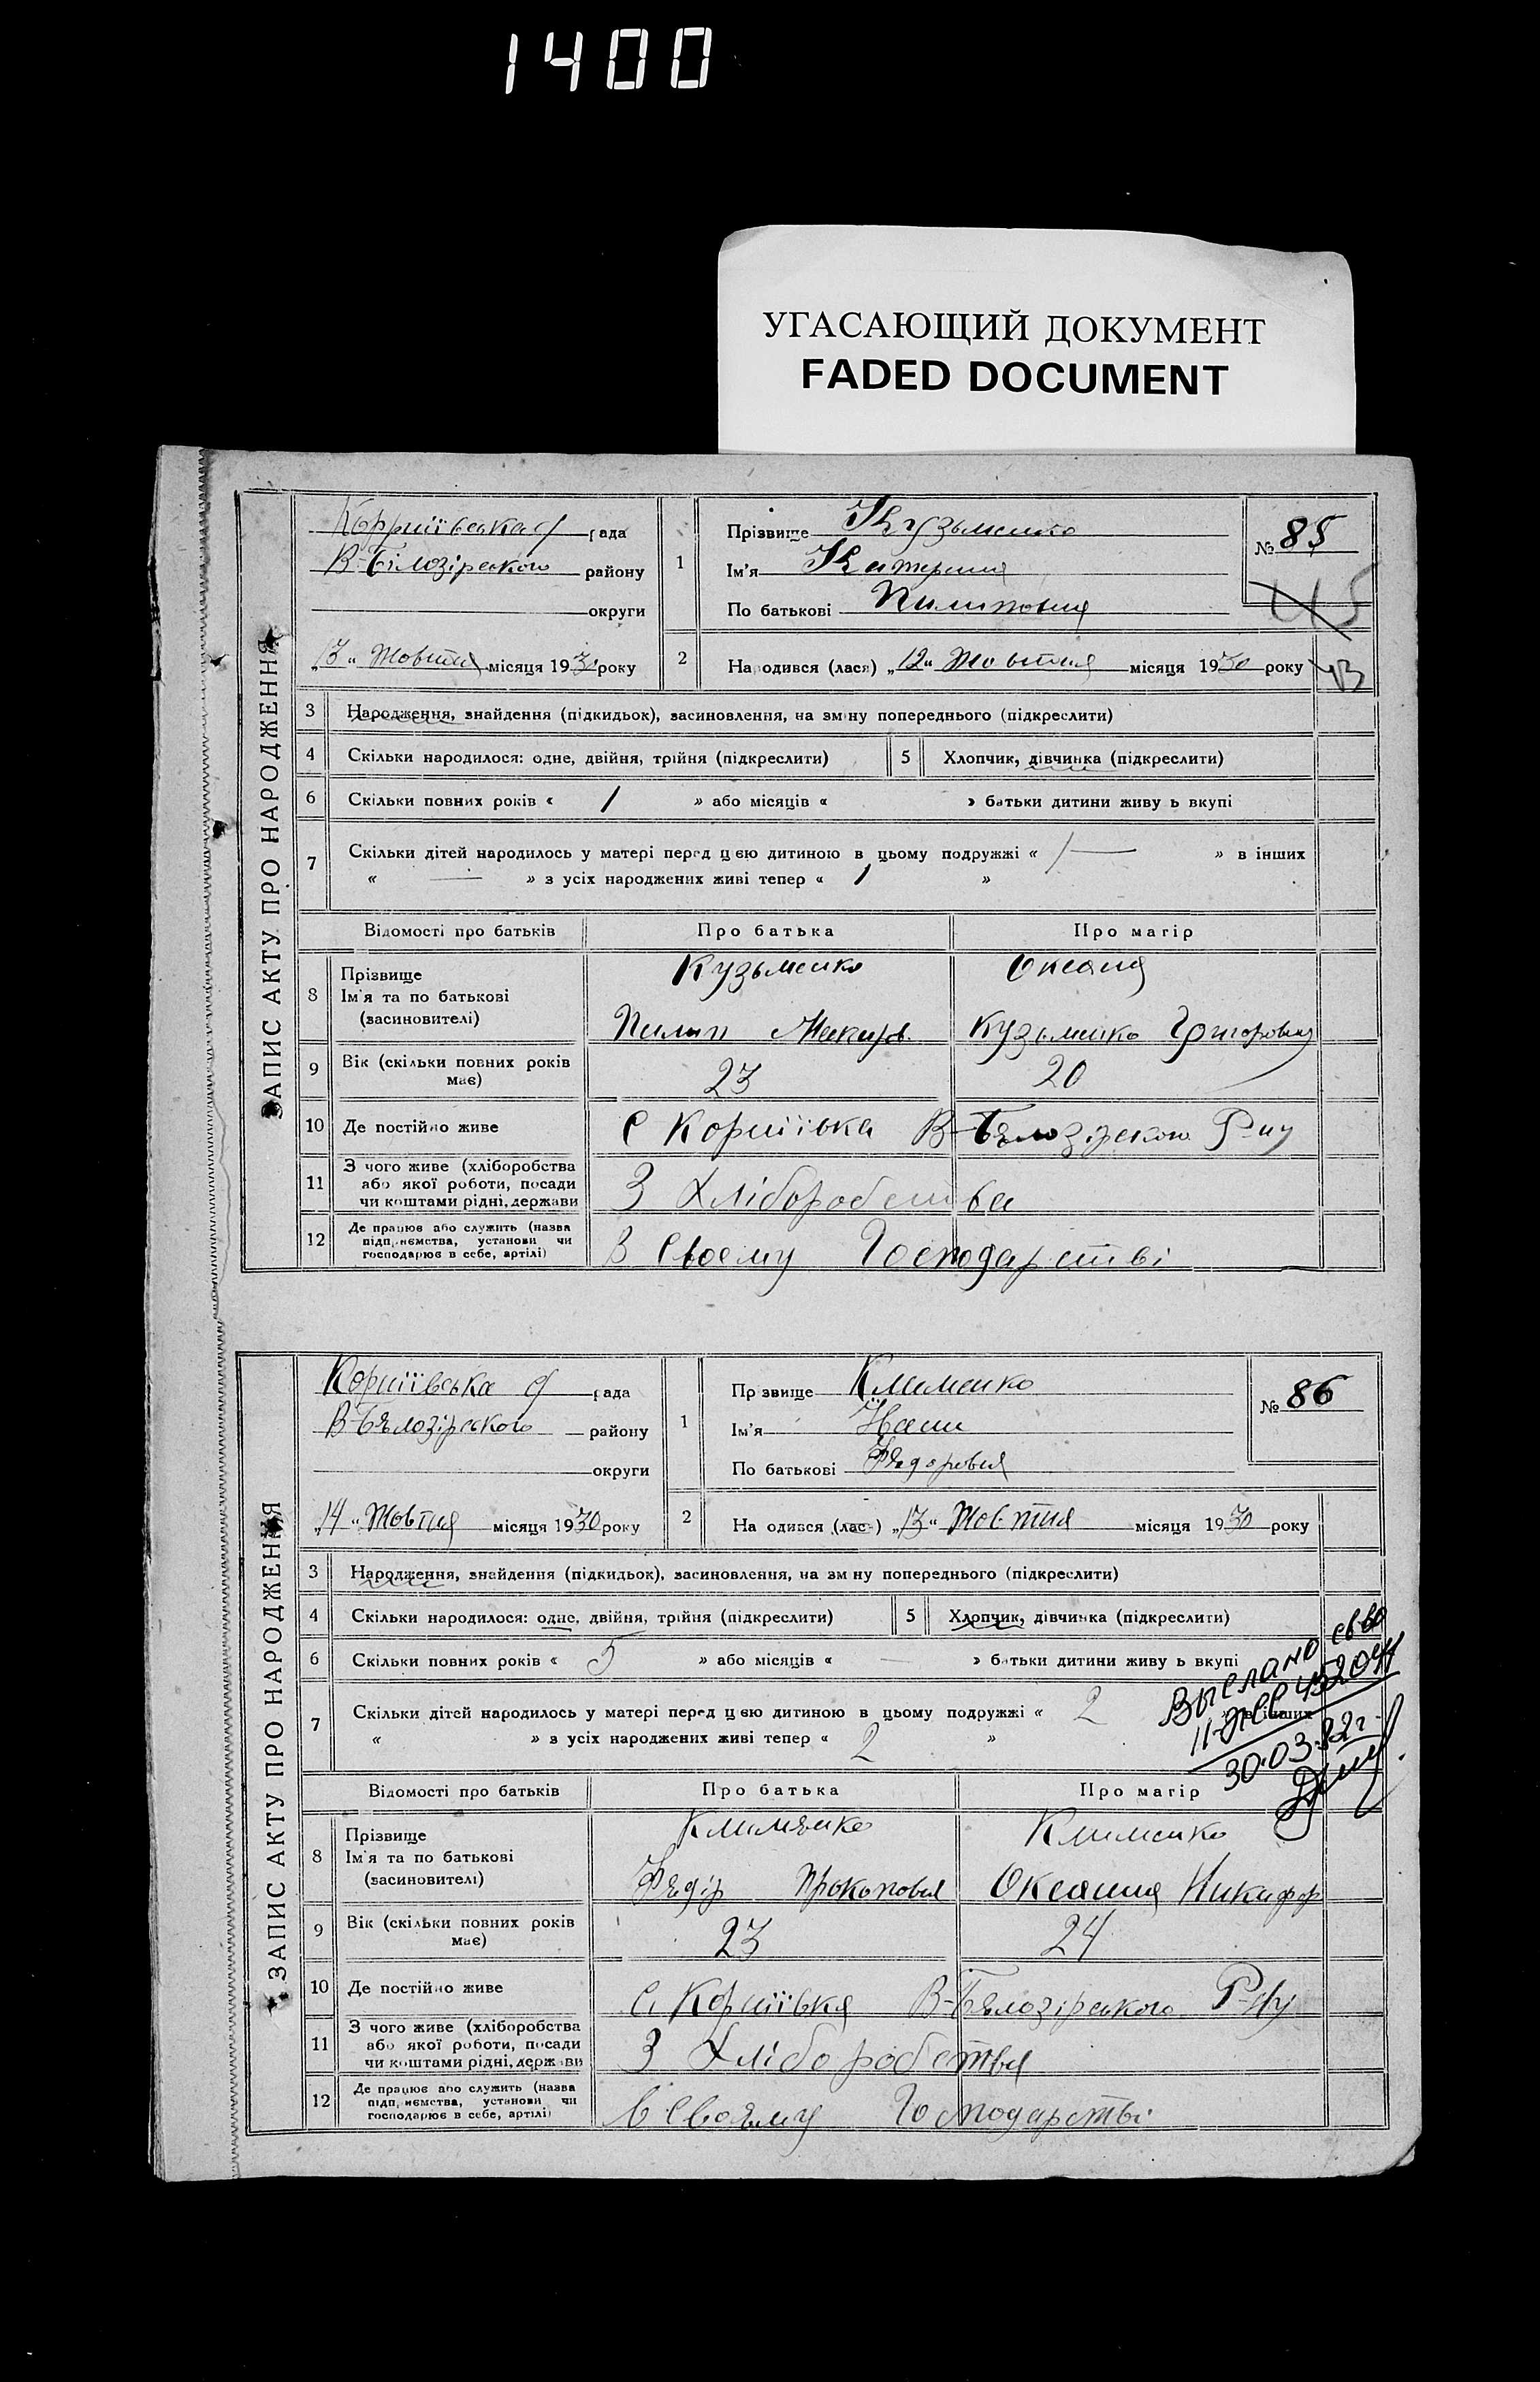 1400
УГАСАЮЩИЙ ДОКУМЕНТ
FADED DOCUMENT
ЗАПИС АКТУ ПРО НАРОДЖЕННЯ
Корніївська с/ рада
В-Білозірського району
округи
„13“ Жовтня місяця 1930 року
1
Прізвище Кузьменко
Ім'я Катерина
По батькові Пилиповна
№ 85
115
43
2 Народився (лася) „12“ Жовтня місяця 1930 року
3 Народження, знайдення (підкидьок), засиновлення, на зміну попереднього (підкреслити)
4 Скільки народилося: одне, двійня, трійня (підкреслити) 5 Хлопчик, дівчинка (підкреслити)
6 Скільки повних років « 1 » або місяців « » батьки дитини живу ь вкупі
7 Скільки дітей народилось у матері перед цією дитиною в цьому подружжі « 1 — » в інших
« — » з усіх народжених живі тепер « 1 »
Відомості про батьків Про батька Про матір
8 Прізвище Кузьменко Оксана
Ім'я та по батькові
(засиновителі) Пилип Макаров. Кузьменко Григоровна
9 Вік (скільки повних років має) 23 20
10 Де постійно живе с Корніївка В-Бєлозірского Р-ну
11 З чого живе (хліборобства
або якої роботи, посади
чи коштами рідні, держави З Хліборобства
12 Де працює або служить (назва
підприємства, установи чи
господарює в себе, артілі) В Своему Господарстві
ЗАПИС АКТУ ПРО НАРОДЖЕННЯ
Корніївська с/ рада
В-Бєлозірського району
округи
„14“ Жовтня місяця 1930 року
1
Пр звище Клименко
Ім'я Иван
По батькові Федорович
№ 86
2 На одився (лас-) „13“ Жовтня місяця 1930 року
3 Народження, знайдення (підкидьок), засиновлення, на зм ну попереднього (підкреслити)
4 Скільки народилося: одне, двійня, трійня (підкреслити) 5 Хлопчик, дівчинка (підкреслити)
6 Скільки повних років « 5 » або місяців « — » батьки дитини живу ь вкупі
7 Скільки дітей народилось у матері перед цією дитиною в цьому подружжі « 2 » в інших
« » з усіх народжених живі тепер « 2 »
Выслано св во
30.03.82г.
Відомості про батьків Про батька Про матір
8 Прізвище Клименко Клименко
Ім'я та по батькові
(засиновителі) Федір Прокопови Оксанна Никифор
9 Вік (скільки повних років має) 23 24
10 Де постійно живе с. Корніївка В-Бєлозірського Р-ну
11 З чого живе (хліборобства
або якої роботи, посади
чи коштами рідні, держави З Хліборобства
12 Де працює або служить (назва
підприємства, установи чи
господарює в себе, артілі) В Своєму Господарстві